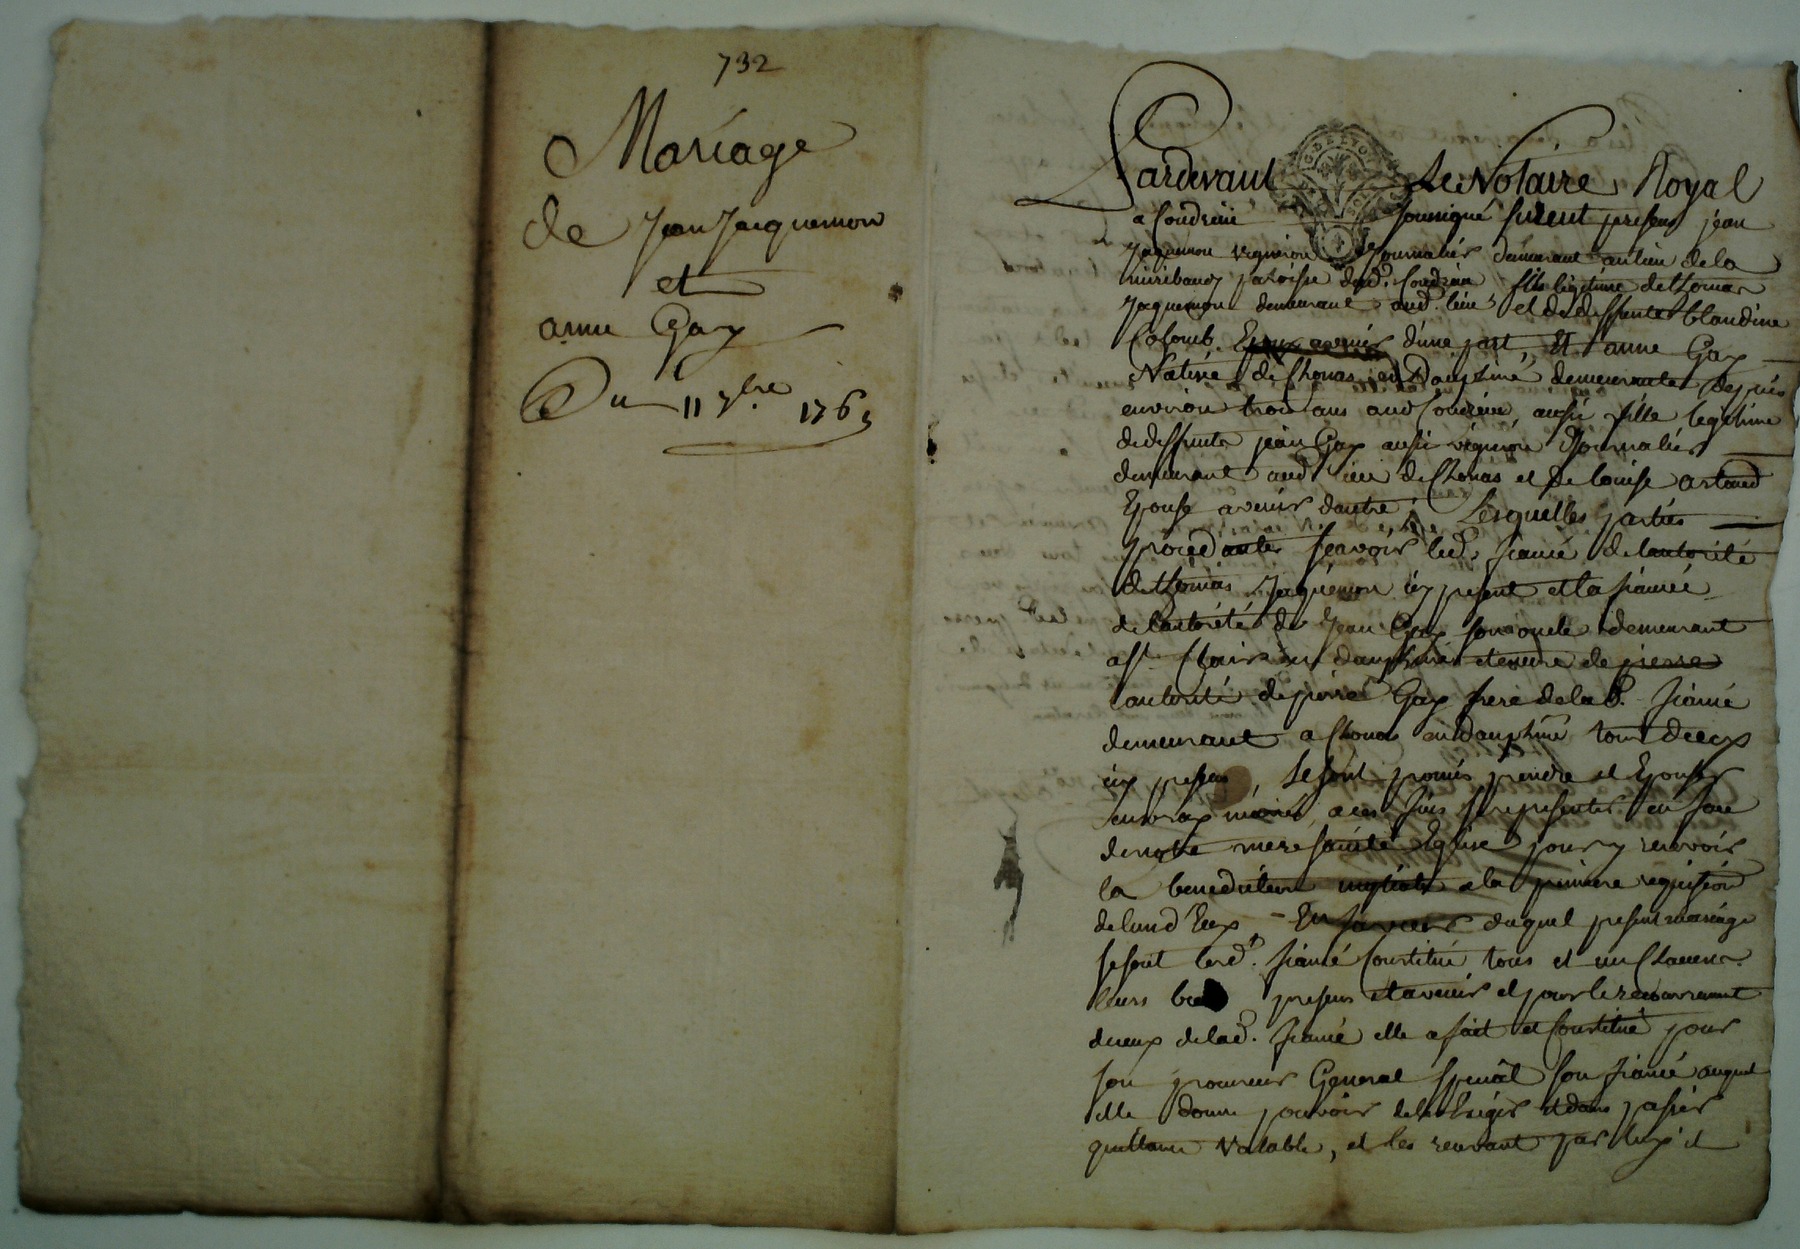 732
Mariage
de Jean Jacquemon
et
anne Gay
Du 11 7bre 1763
Pardevant Le Notaire Royal
a Condrieu soussigné furent presens jean
Jaquemon vigneron Journalier demeurant au lieu de la
paroisse dud. Condrieu fils legitime de thomas
Jaquemon demeurant aud. lieu et de deffunte blandine
Colomb, Epoux avenir d'une part, Et anne Gay
Native de Chonas en Dauphiné demeurante depuis
environ trois ans aud Condrieu, aussi fille legitime
de deffunt jean Gay aussi vigneron Journalier
demeurant aud lieu de Chonas et de louise artaud
Epouse avenir d'autre, Lesquelles parties
procedantes scavoir led. fiancé de lautorité
de thomas Jaquemon icy present et la fiancée
de lautorité de Jean Gay son oncle demeurant
a st Clair en dauphiné et encore de pierre
lautorité de pierre Gay frere de lad. fiancée
demeurant a Chonas en Dauphiné tous deux
icy presens, Se sont promis prendre et Epouser
en vray mariage, a ces fins se representer en face
de notre mere sainte Eglise pour y recevoir
la benediction nuptiale a la premiere requisition
de lun d'Eux, En faveur duquel present mariage
se sont lesd. fiancés Constitué tous et un Chacun
leurs biens presens et avenir et pour le recouvrement
diceux de lad. fiancée elle a fait et Constitué pour
son procureur General special son fiancé auquel
elle donne pouvoir de les Exiger et den passer
quittance valable, et les recevant par luy il